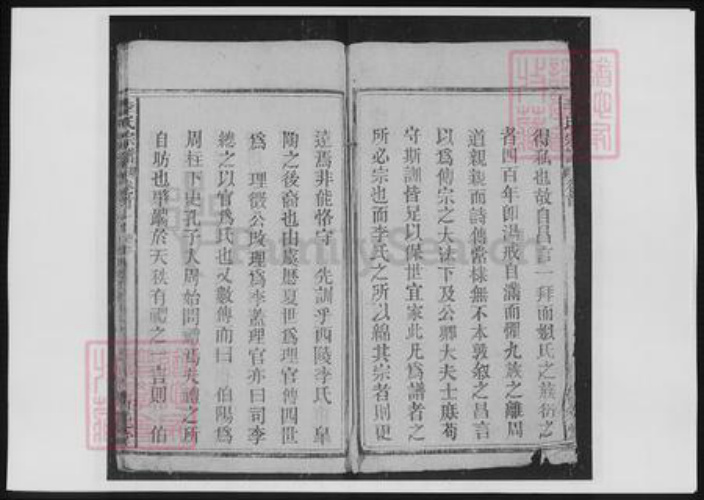 得私也故自昌言一拜而姒氏之族衍之
者四百年卽湯戒自滿而懼九族之離周
道親親而詩傳棠棣無不本敦叙之昌言
以爲傳宗之大法下及公卿大夫士庶苟
守斯訓皆足以保世宜家此凡爲譜者之
所必宗也而李氏之所以綿其宗者則更
逵焉非能恪守 先訓乎西陵李氏 皐
陶之後裔也由虞歷夏世爲理官傳四世
爲 理徵公改理爲李蓋理官亦曰司李
總之以官爲氏也又數傳而曰 伯陽爲
周柱下史孔子入周始問禮焉夫禮之所
自昉也肇 於天秩有禮之一言則 伯
李氏宗譜
FamilySearch